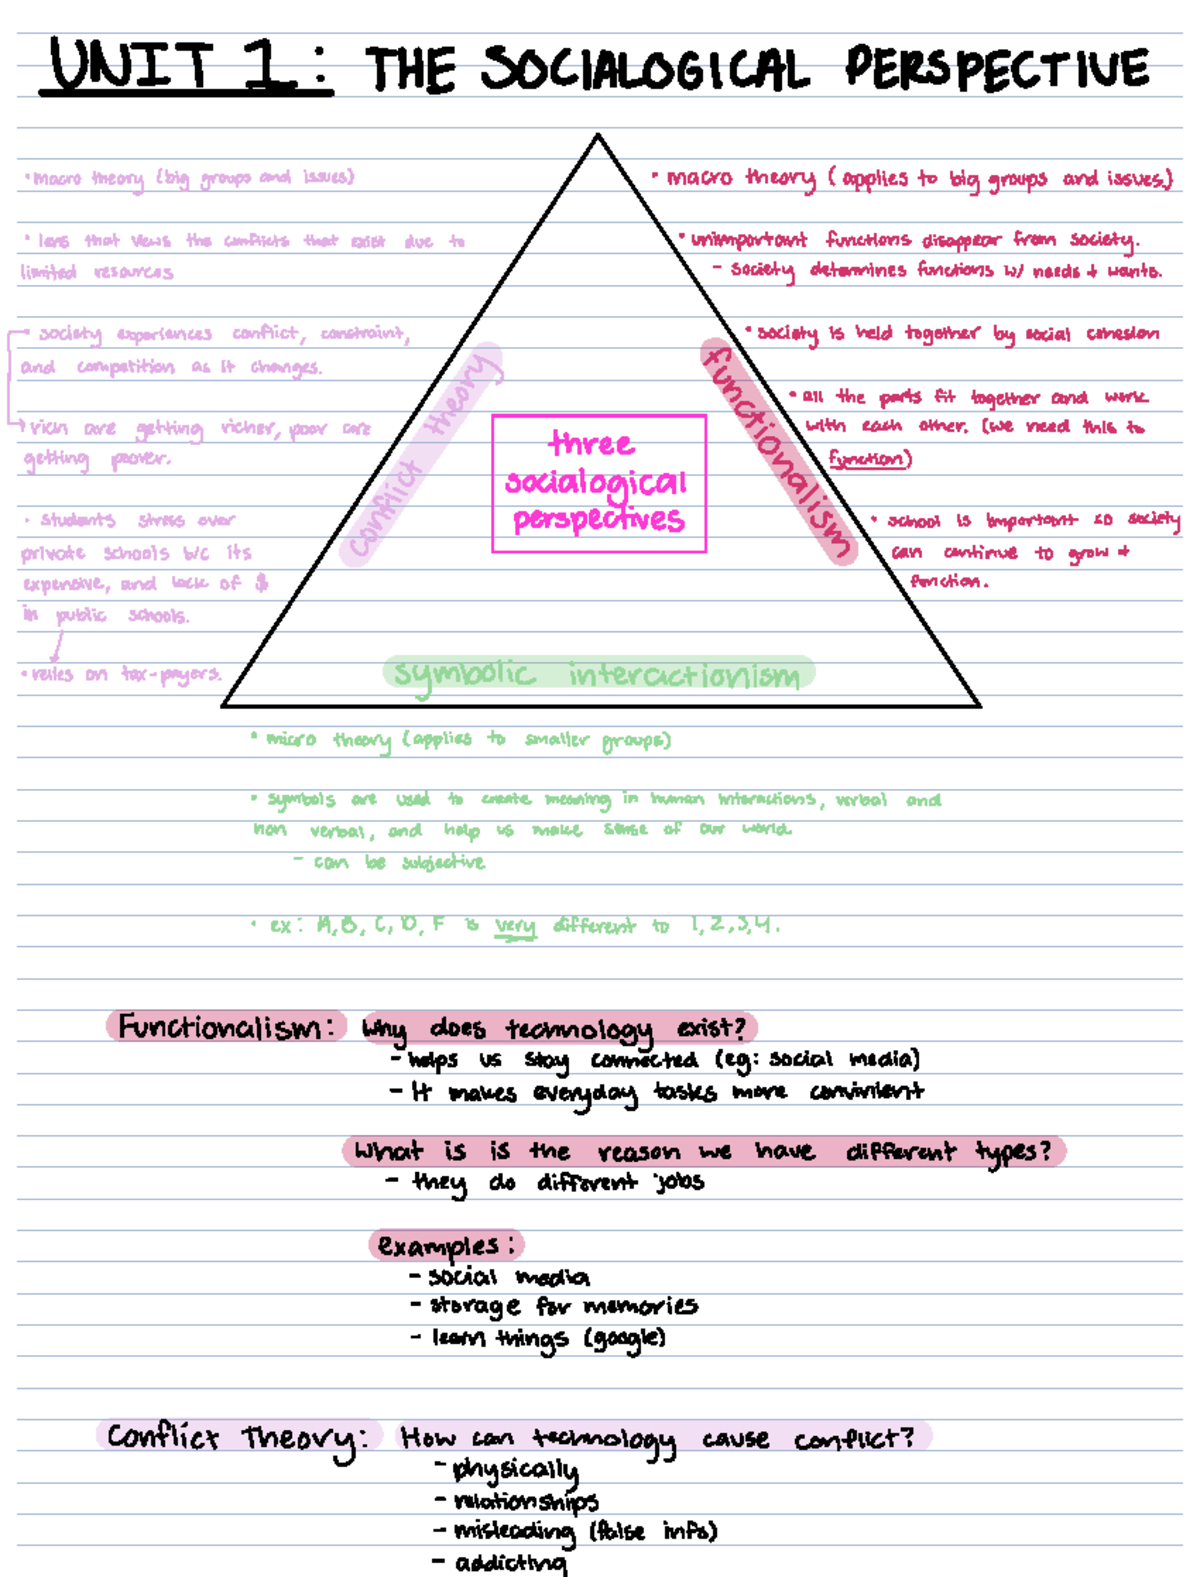 UNIT 1: THE SOCIALOGICAL PERSPECTIVE
• macro theory (big groups and issues)
• lens that views the conflicts that exist due to
limited resources
• society experiences conflict, constraint,
and competition as it changes.
rich are getting richer, poor are
getting poorer.
• students stress over
private schools b/c its
expensive, and lack of $
in public schools.
• relies on tax-payers.
conflict theory
three
socialogical
perspectives
functionalism
• macro theory (applies to big groups and issues)
• unimportant functions disappear from society.
- society determines functions w/ needs + wants.
• society is held together by social cohesion
• all the parts fit together and work
with each other. (we need this to
function)
• school is important so society
can continue to grow +
function.
symbolic interactionism
• micro theory (applies to smaller groups)
• symbols are used to create meaning in human interactions, verbal and
non verbal, and help us make sense of our world.
- can be subjective
• ex: A, B, C, D, F is very different to 1, 2, 3, 4.
Functionalism: Why does technology exist?
- helps us stay connected (eg: social media)
- It makes everyday tasks more convinient
What is is the reason we have different types?
- they do different jobs
examples:
- social media
- storage for memories
- learn things (google)
Conflict Theory: How can technology cause conflict?
- physically
- relationships
- misleading (false info)
- addicting